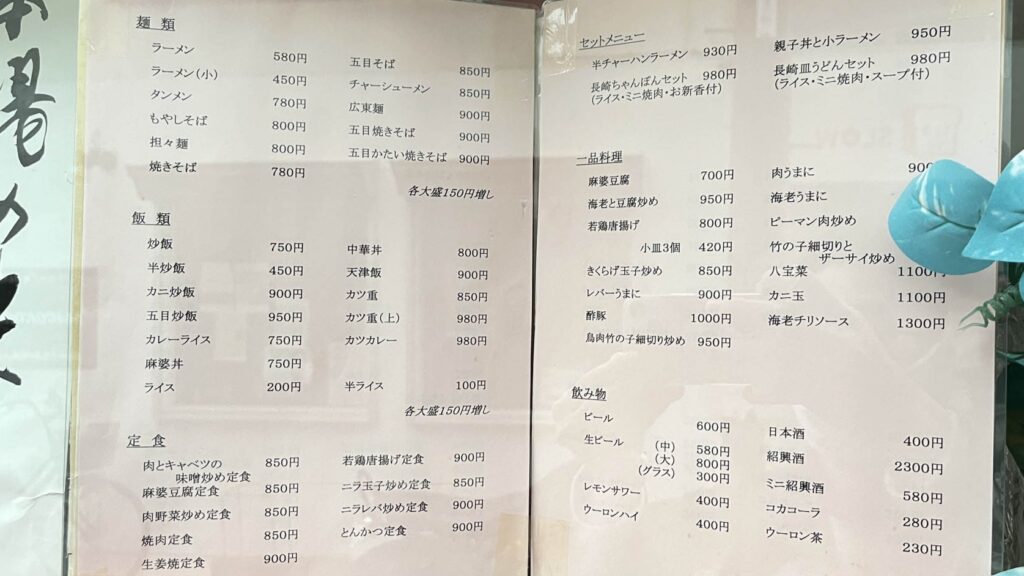 麺 類
ラーメン 580円
ラーメン(小) 450円
タンメン 780円
もやしそば 800円
担々麺 800円
焼きそば 780円
五目そば 850円
チャーシューメン 850円
広東麺 900円
五目焼きそば 900円
五目かたい焼きそば 900円
各大盛150円増し
飯 類
炒飯 750円
半炒飯 450円
カニ炒飯 900円
五目炒飯 950円
カレーライス 750円
麻婆丼 750円
ライス 200円
中華丼 800円
天津飯 900円
カツ重 850円
カツ重(上) 980円
カツカレー 980円
半ライス 100円
各大盛150円増し
定 食
肉とキャベツの 850円
味噌炒め定食
麻婆豆腐定食 850円
肉野菜炒め定食 850円
焼肉定食 850円
生姜焼定食 900円
若鶏唐揚げ定食 900円
ニラ玉子炒め定食 850円
ニラレバ炒め定食 900円
とんかつ定食 900円
セットメニュー
半チャーハンラーメン 930円
長崎ちゃんぽんセット 980円
(ライス・ミニ焼肉・お新香付)
親子丼と小ラーメン 950円
長崎皿うどんセット 980円
(ライス・ミニ焼肉・スープ付)
一品料理
麻婆豆腐 700円
海老と豆腐炒め 950円
若鶏唐揚げ 800円
小皿3個 420円
きくらげ玉子炒め 850円
レバーうまに 900円
酢豚 1000円
鳥肉竹の子細切り炒め 950円
肉うまに
海老うまに
ピーマン肉炒め
竹の子細切りと
ザーサイ炒め
八宝菜 1100円
カニ玉 1100円
海老チリソース 1300円
飲み物
ビール 600円
生ビール (中) 580円
(大) 800円
(グラス) 300円
レモンサワー 400円
ウーロンハイ 400円
日本酒 400円
紹興酒 2300円
ミニ紹興酒 580円
コカコーラ 280円
ウーロン茶 230円